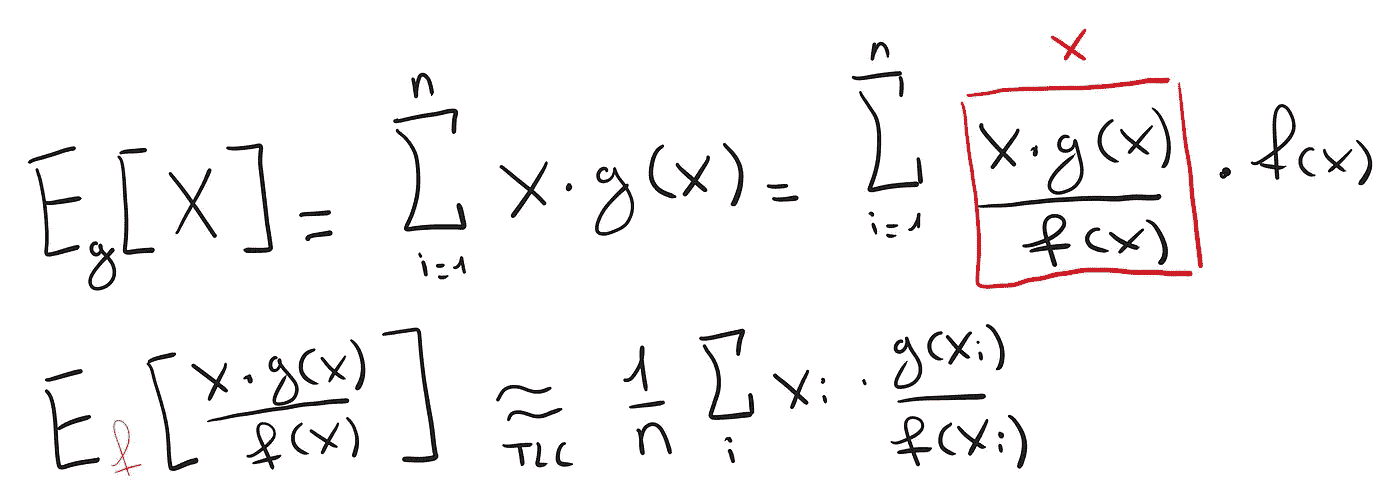 E_g[X] = \sum_{i=1}^{n} x \cdot g(x) = \sum_{i=1}^{n} \overset{x}{\boxed{\frac{x \cdot g(x)}{f(x)}}} \cdot f(x)
E_f\left[\frac{x \cdot g(x)}{f(x)}\right] \underset{TLC}{\approx} \frac{1}{n} \sum_{i} x_i \cdot \frac{g(x_i)}{f(x_i)}